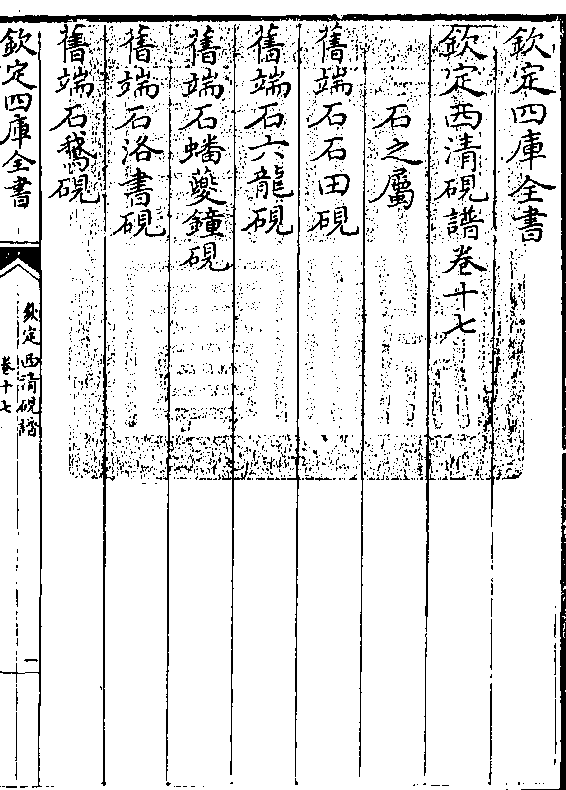 欽定四庫全書
欽定西清硯譜卷十七
石之屬
舊端石石田硯
舊端石六龍硯
舊端石蟠夔鐘硯
舊端石洛書硯
舊端石鵞硯
欽定四庫全書
欽定西清硯譜
卷十七
一